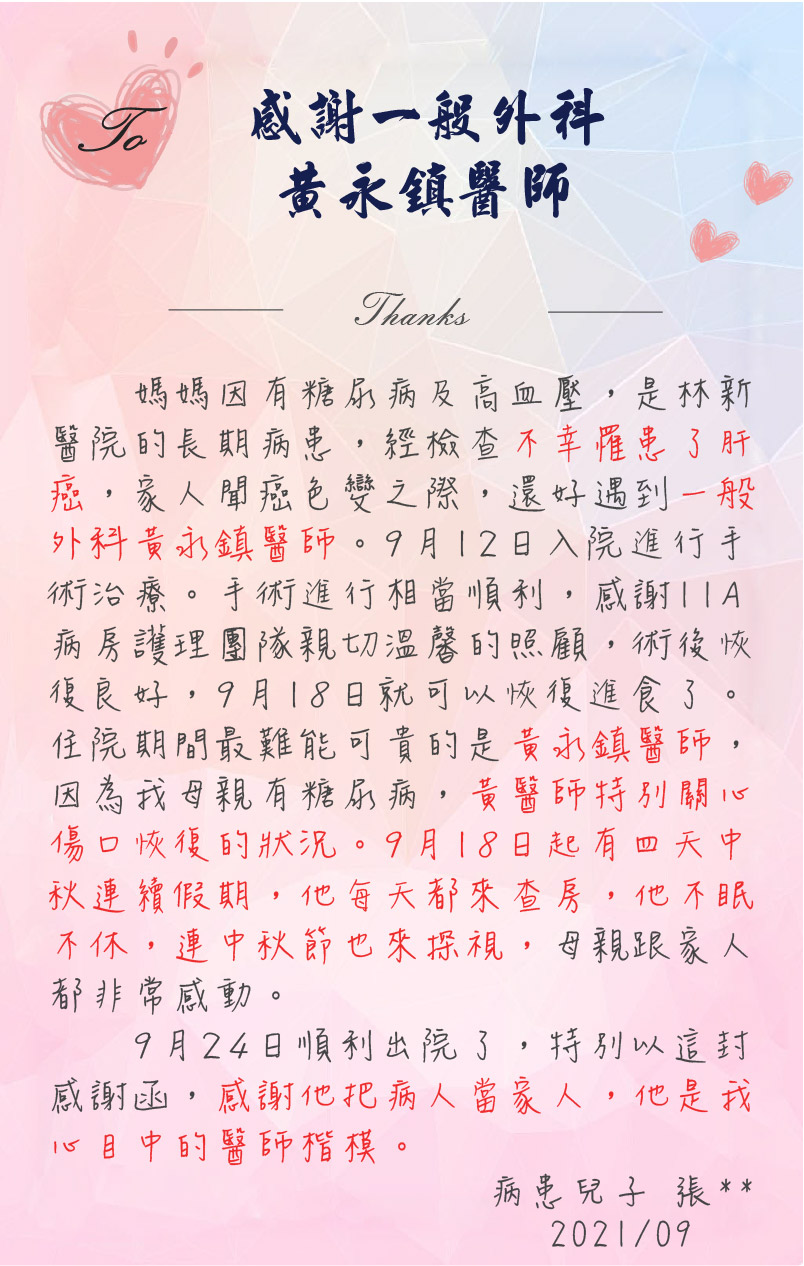 To
感謝一般外科
黃永鎮醫師
Thanks
媽媽因有糖尿病及高血壓，是林新
醫院的長期病患，經檢查不幸罹患了肝
癌，家人聞癌色變之際，還好遇到一般
外科黃永鎮醫師。9月12日入院進行手
術治療。手術進行相當順利，感謝11A
病房護理團隊親切溫馨的照顧，術後恢
復良好，9月18日就可以恢復進食了。
住院期間最難能可貴的是黃永鎮醫師，
因為我母親有糖尿病，黃醫師特別關心
傷口恢復的狀況。9月18日起有四天中
秋連續假期，他每天都來查房，他不眠
不休，連中秋節也來探視，母親跟家人
都非常感動。
9月24日順利出院了，特別以這封
感謝函，感謝他把病人當家人，他是我
心目中的醫師楷模。
病患兒子 張**
2021/09